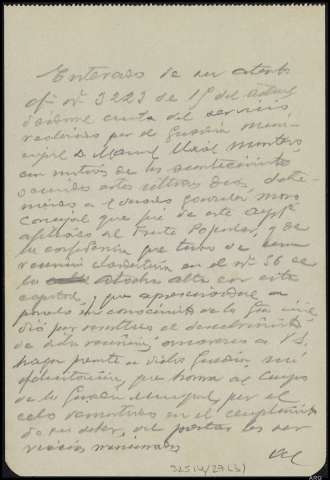 Enterado de su atento
of. nº 3223 de 19 del actual
dandome cuenta del servicio
realizado por el Guardia Muni-
cipal D. Manuel Montero
con motivo de los acontecimientos
ocurridos estos ultimos dias, dete-
niendo a
Concejal que fué de este Aytº
afiliado al Frente Popular, y de
la confidencia que tuvo de una
reunion clandestina en el nº 56 de
la calle Atocha alta de esta
capital, y que
ponerlo en conocimiento de la Gua civil
dió por resultado el descubrimiento
de dicha reunion; intereso a V.S.
haga presente a dicho Guardia mi
felicitacion, que honra al Cuerpo
de la Guardia Municipal por el
celo demostrado en el cumplimiento
de su deber, al prestar los ser-
vicios mencionados
325 (4/27.L3)
ARG